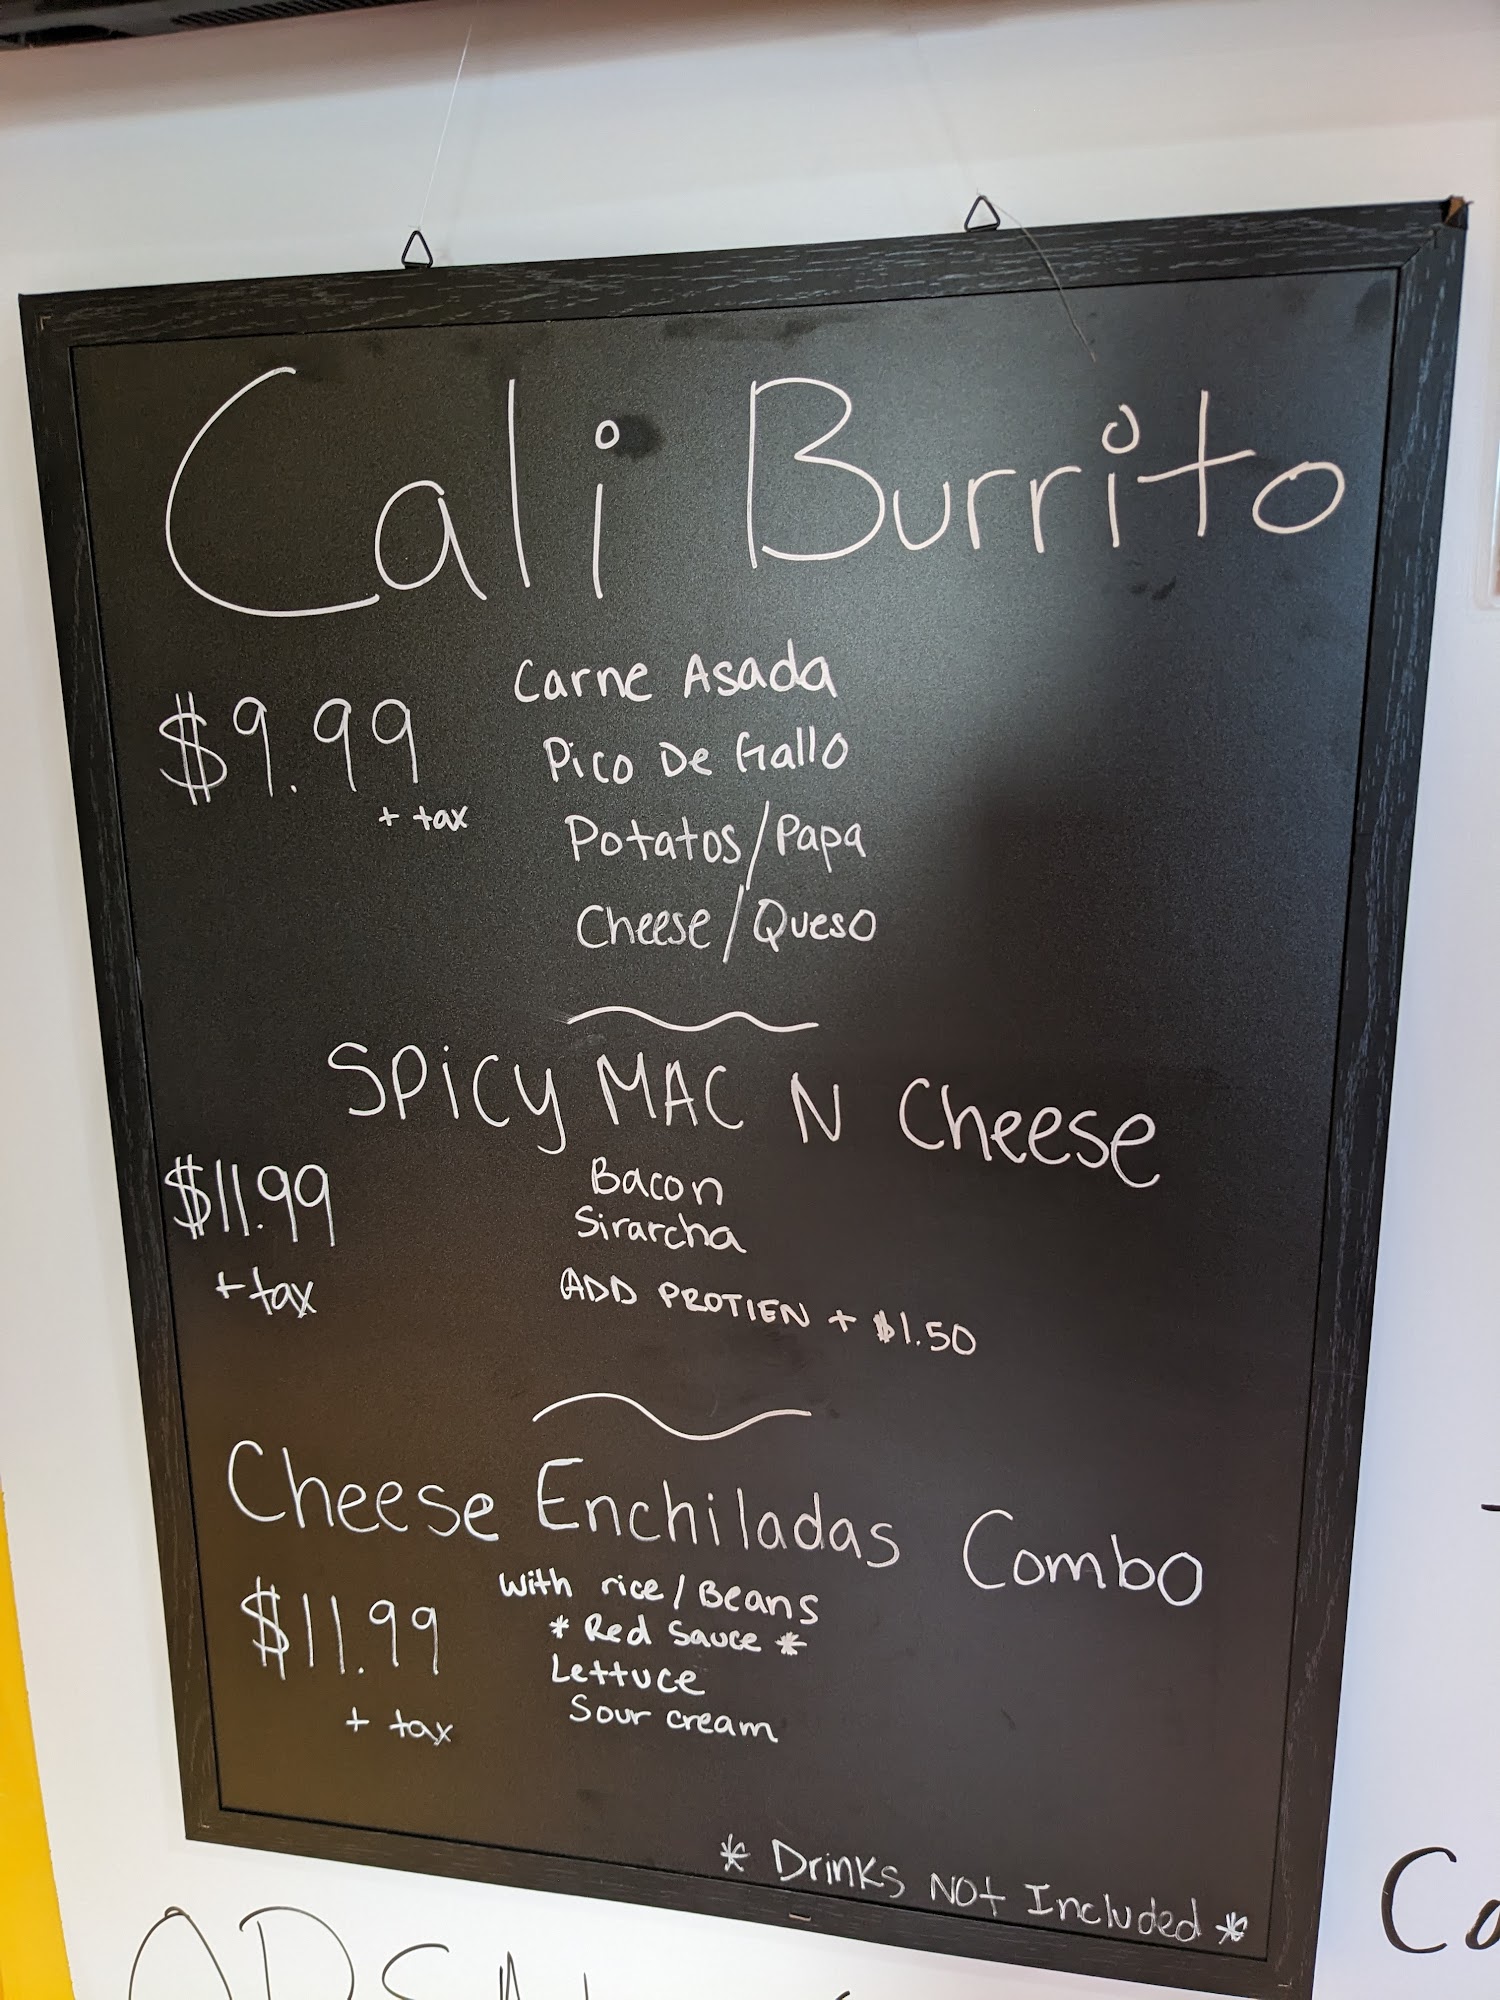 Cali Burrito
$9.99
+ tax
Carne Asada
Pico De Gallo
Potatos/Papa
Cheese/Queso
SPicy MAC N Cheese
$11.99
+ tax
Bacon
Sirarcha
ADD PROTIEN + $1.50
Cheese Enchiladas Combo
$11.99
+ tax
With rice/Beans
* Red Sauce *
Lettuce
Sour cream
* Drinks NOt Included *